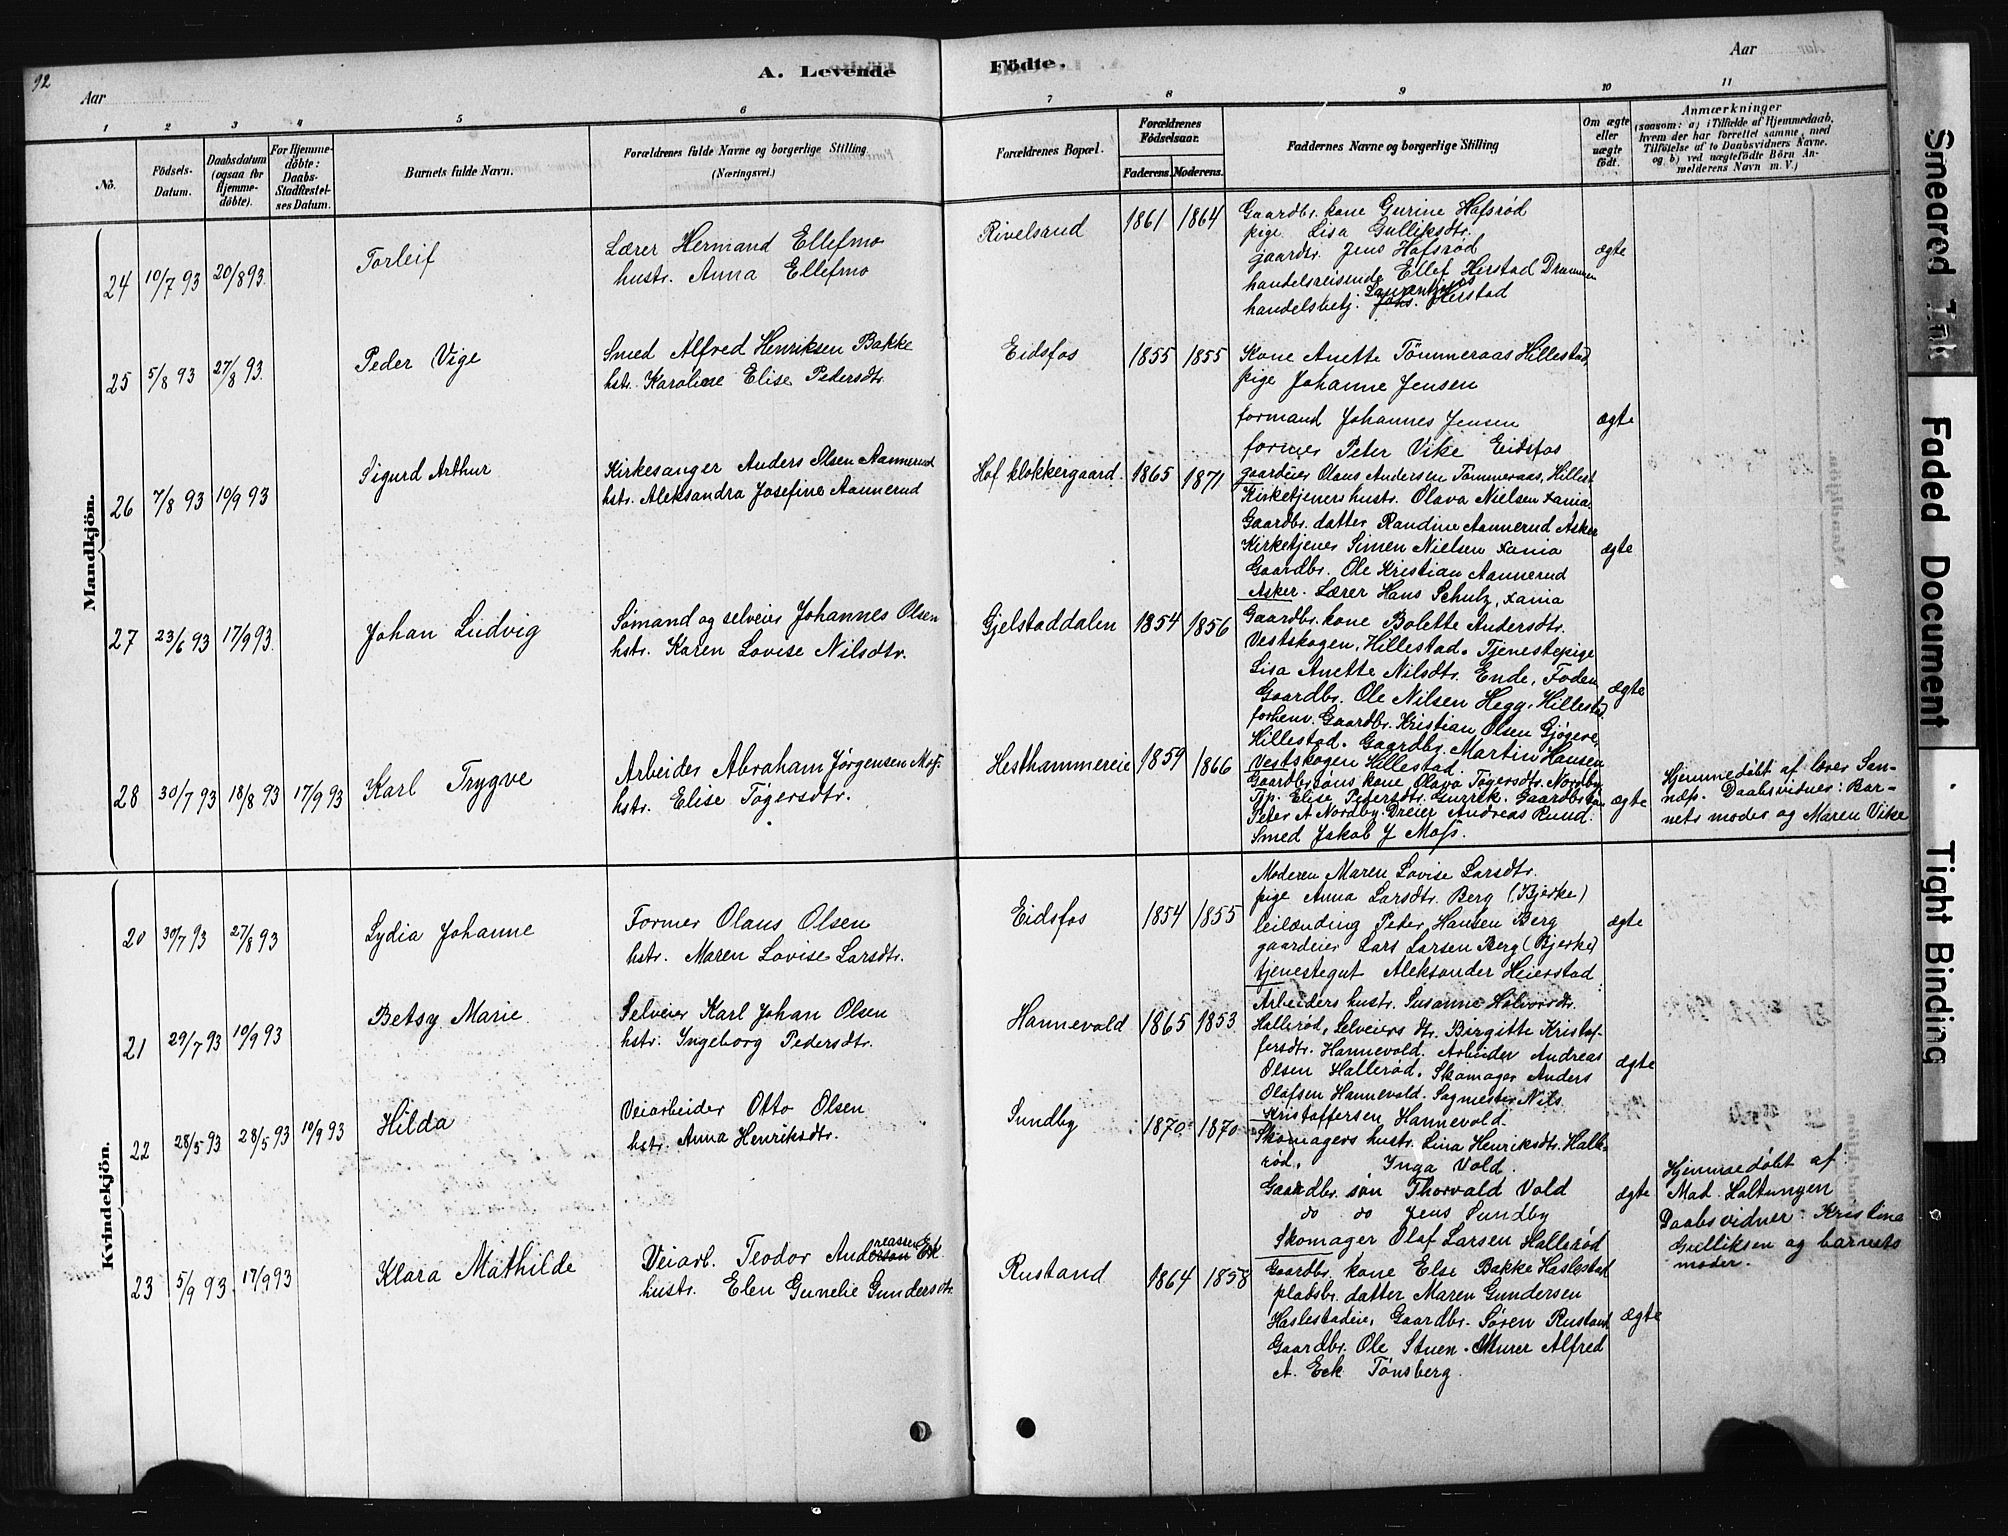 92
Aar
A. Levende
Födte.
Aar
1 2 3 4 5 6 7 8 9 10 11
No.
Födsels-
Datum.
Daabsdatum
(ogsaa for
Hjemme-
döbte).
For Hjemme-
döbte:
Daabs-
Stadfæstel-
ses Datum.
Barnets fulde Navn.
Forældrenes fulde Navne og borgerlige Stilling
(Næringsvei.)
Forældrenes Bopæl.
Forældrenes
Födselsaar.
Faderens. Moderens.
Faddernes Navne og borgerlige Stilling
Om ægte
eller
uægte
födt.
Anmærkninger
(saasom: a) i Tilfælde af Hjemmedaab,
hvem der har forrettet samme, med
Tilföielse af to Daabsvidners Navne.
og b) ved uægtefödte Börn An-
melderens Navn m. V.)
Mandkjön.
24 10/7 93 20/8 93.
Torleif
Lærer Hermand Ellefmo
hustr. Anna Ellefmo
Rivelsrud
1861 1864
Gaardbr. kone Gurine Hafsrød
pige Lisa Gulliksdtr.
gaardbr. Jens Hafsrød
handelsreisende Ellef Herstad Drammen
handelsbetj. Laurentius Herstad
ægte
25 5/8 93 27/8 93.
Peder Vige
Smed Alfred Henriksen Bakke
hstr. Karoline Elise Pedersdtr.
Eidsfos
1855 1855
Kone Anette Tömmeraas Hillestad,
pige Johanne Jensen
formand Johannes Jensen
former Peter Vike Eidsfos
gaardeier Olaus Andersen Tømmeraas, Hillest.
ægte
26 7/8 93 10/9 93
Sigurd Arthur
Kirkesanger Anders Olsen Aannerud
hstr. Aleksandra Josefine Aannerud
Hof klokkergaard.
1865 1871
Kirketjeners hustr. Olava Nielsen Xania
Gaardbr. datter Randine Aannerud Asker
Kirketjener Simen Nielsen Xania
Gaardbr. Ole Kristian Aannerud
Asker. Lærer Hans Schulz, Xania
ægte
27 23/6 93 17/9 93.
Johan Ludvig
Sømand og selveier Johannes Olsen
hstr. Karen Lovise Nilsdtr.
Gjelstaddalen
1854 1856
Gaardbr. kone Bolette Andersdtr.
Vestskogen, Hillestad. Tjenestepige
Lisa Anette Nilsdtr. Ende, Foden
Gaardbr. Ole Nilsen Hegg, Hillestad.
forhenv. Gaardbr. Kristian Olsen Gjøgere,
Hillestad. Gaardbr. Martin Hansen
Vestskogen Hillestad
ægte
28 30/7 93 18/8 93 17/9 93
Karl Trygve
Arbeider Abraham Jørgensen Mos.
hstr. Elise Tøgersdtr.
Hesthammereie
1859 1866
Gaardbr. søns kone Olava Tøgersdtr. Nordby
Tjp. Elise Pedersdtr. Gurrik. Gaardbr. søn
Peter A Nordby. Dreier Andreas Rund.
Smed Jakob J Moss.
ægte
Hjemmedøbt af lærer San-
næs. Daabsvidner: Bar-
nets moder og Maren Vike
Kvindekjön.
20 30/7 93 27/8 93
Lydia Johanne
Former Olaus Olsen
hstr. Maren Lovise Larsdtr.
Eidsfos
1854 1855
Moderen Maren Lovise Larsdtr.
pige Anna Larsdtr. Berg (Bjerke)
leilænding Peter Hansen Berg
gaardeier Lars Larsen Berg (Bjerke)
tjenestegut Aleksander Heierstad
ægte
21 29/7 93 10/9 93
Betsy Marie
Selveier Karl Johan Olsen
hstr. Ingeborg Pedersdtr.
Hannevold
1865 1853
Arbeiders hustr. Susanne Halvordtr.
Hallerød, Selveiers dtr. Birgitte Kristof-
fersdtr. Hannevold. Arbeider Andreas
Olsen Hallerød. Skomager Anders
Olafsen Hannevold. Sagmester Nils
Kristoffersen Hannevold.
ægte
22 28/5 93 28/5 93 10/9 93
Hilda
Veiarbeider Otto Olsen
hstr. Anna Henriksdtr.
Sundby
1870 1870
Skomagers hustr. Lina Henriksdtr. Halle-
rød. Inga Vold.
Gaardbr. søn Thorvald Vold
do do Jens Sundby
Skomager Olaf Larsen Hallerød
ægte
Hjemmedøbt af
Mad. Holtungen
Daabsvidner: Kristina
Gulliksen og barnets
moder.
23 5/9 93 17/9 93
Klara Mathilde
Veiarb. Teodor Andreassen Eck
hustr. Elen Gunelie Gundersdtr.
Rustand
1864 1858
Gaardbr. kone Else Bakke Haslestad
pladsbr. datter Maren Gundersen
Haslestadeie, Gaardbr. Søren Rustand
Gaardbr. Ole Stuen. Murer Alfred
A. Eck Tønsberg.
ægte
Smeared Ink
Faded Document
Tight Binding